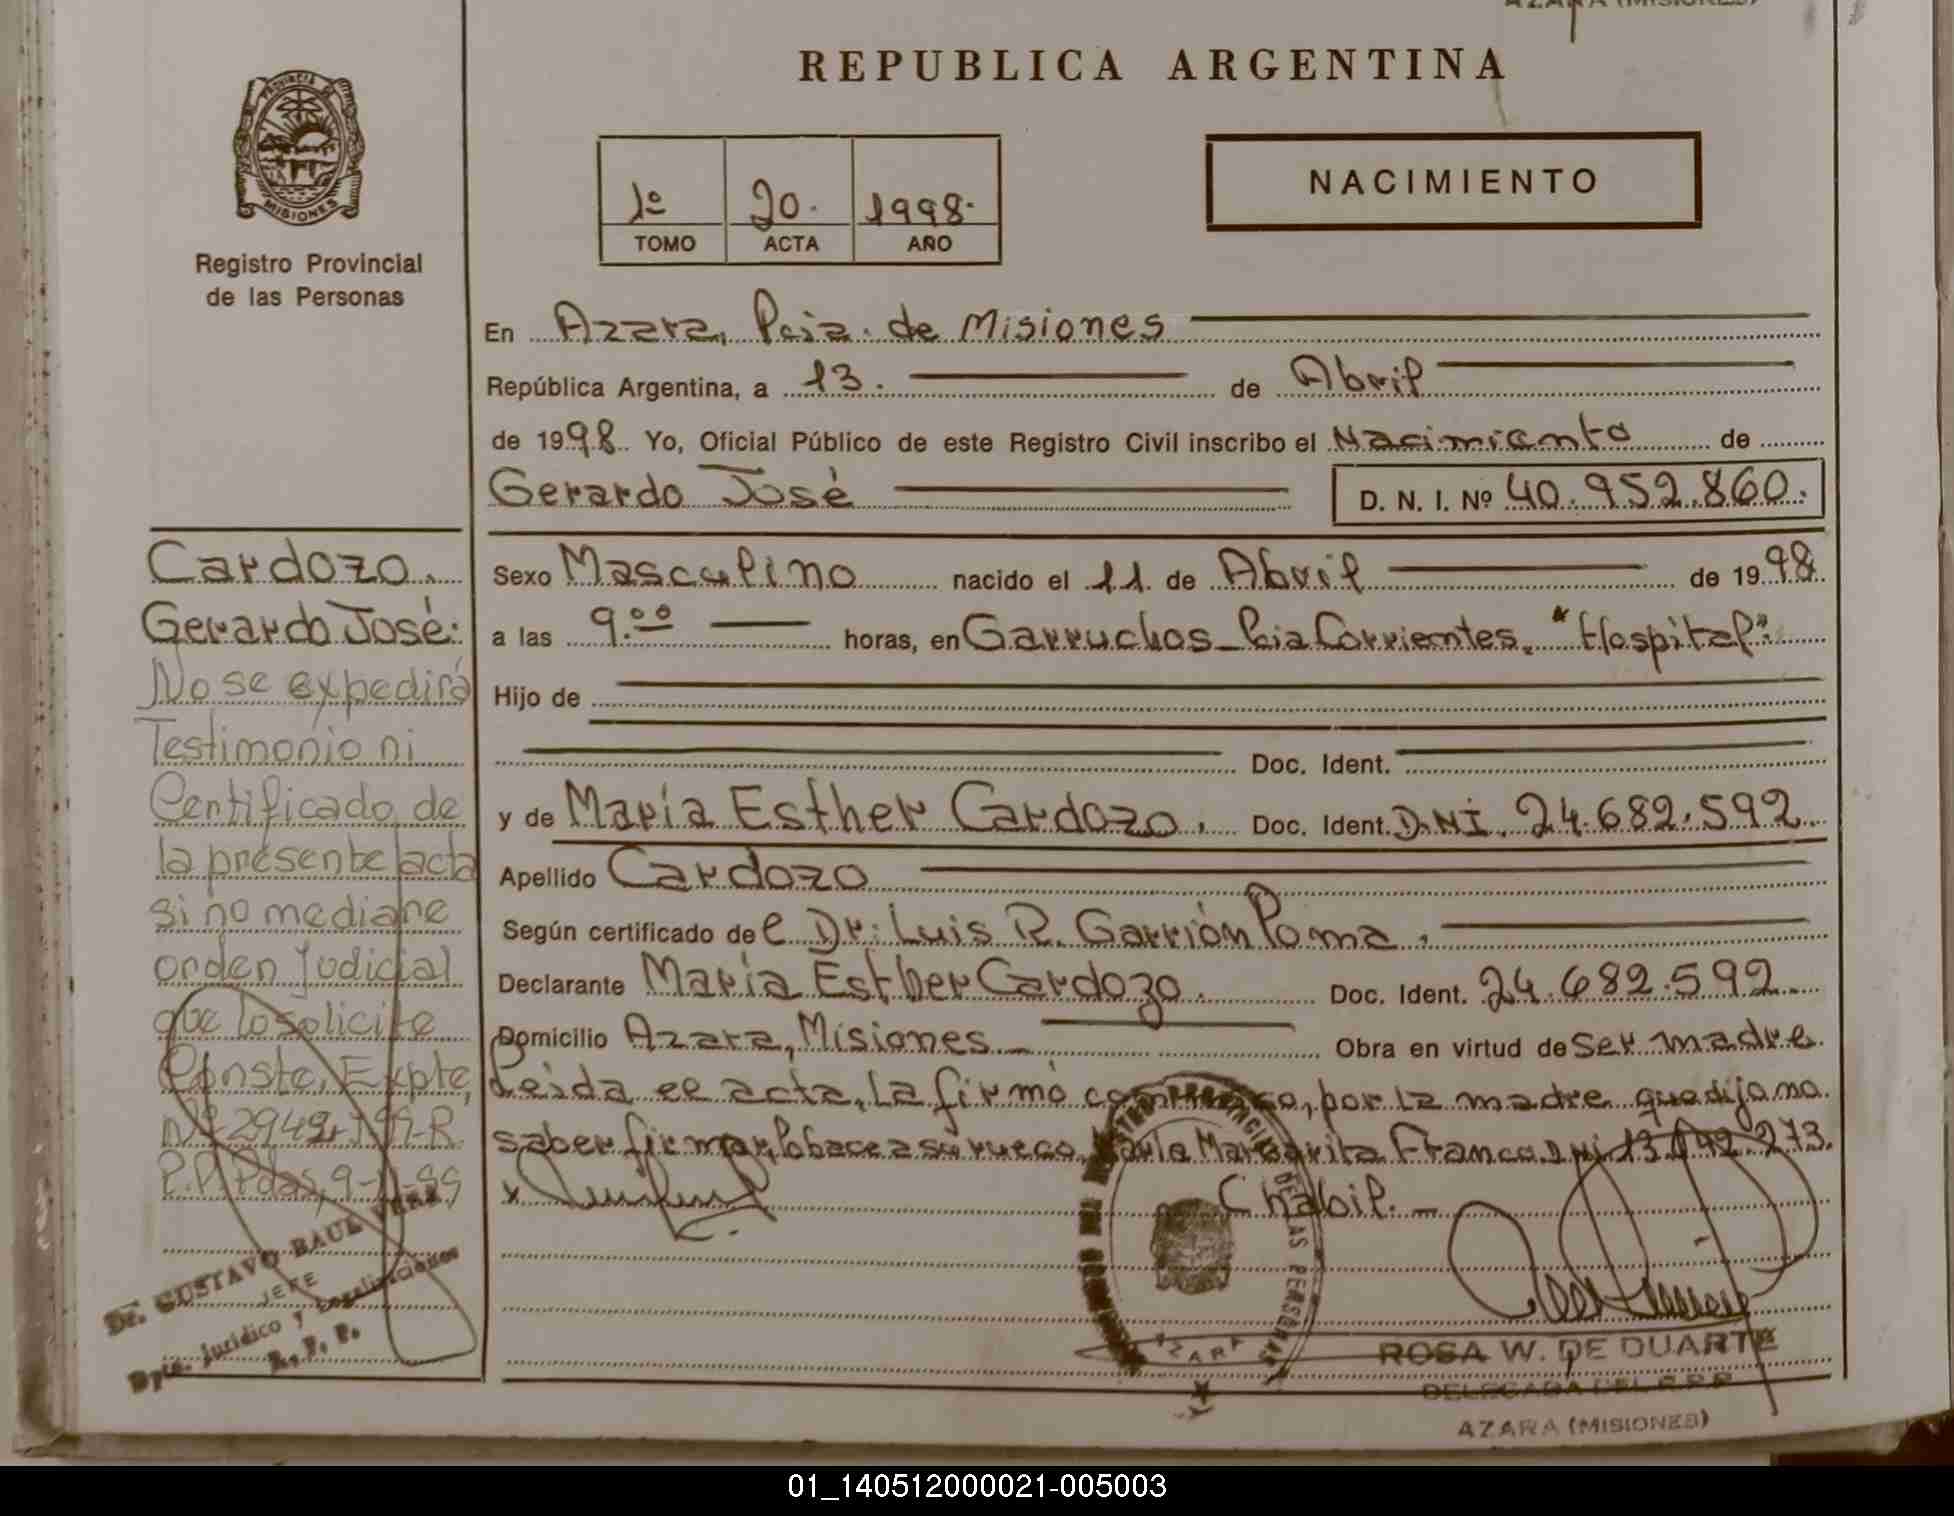 AZARA (MISIONES)
REPUBLICA ARGENTINA
PROVINCIA DE
MISIONES
Registro Provincial
de las Personas
1º 20. 1998.
TOMO ACTA AÑO
NACIMIENTO
En Azara, Pcia. de Misiones
República Argentina, a 13. de Abril
de 1998. Yo, Oficial Público de este Registro Civil inscribo el Nacimiento de
Gerardo José D. N. I. Nº 40.952.860.
Cardozo.
Gerardo José.
No se expedirá
Testimonio ni
Certificado de
la presente acta
si no mediare
orden Judicial
que lo solicite
Conste, Expte,
R.P.P.
Dr. GUSTAVO RAUL VERA
JEFE
Dpto. Jurídico y Legalizaciones
R. P. P.
Sexo Masculino nacido el 11. de Abril de 1998.
a las 9.oo horas, en Garruchos - Pcia Corrientes. "Hospital".
Hijo de
Doc. Ident.
y de María Esther Cardozo. Doc. Ident. D.N.I. 24.682.592.
Apellido Cardozo
Según certificado del Dr: Luis R. Garrión Poma.
Declarante María Esther Cardozo. Doc. Ident. 24.682.592
Domicilio Azara, Misiones - Obra en virtud de ser madre
Leida el acta, la firmó conmigo, por la madre que dijo no
saber firmar, lo hace a su ruego, Margarita Franco DNI 13.
Chabil. -
DE LAS PERSONAS
AZARA
ROSA W. DE DUARTE
DELEGADA DEL R.P.P.
AZARA (MISIONES)
01_140512000021-005003